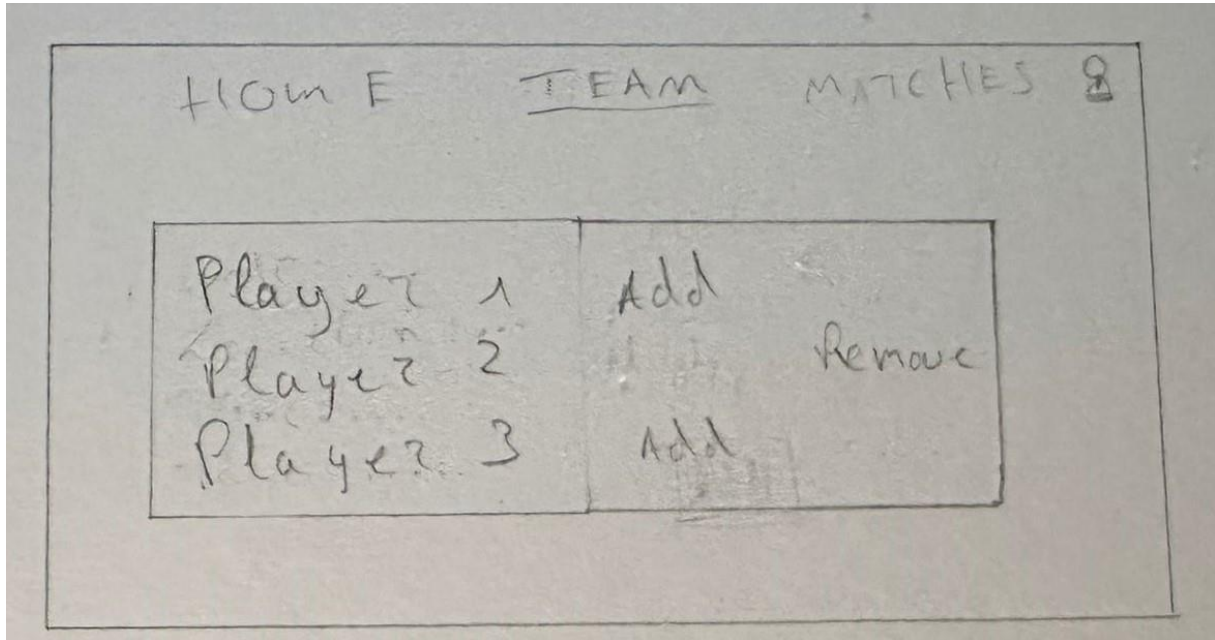 HOME TEAM MATCHES
Player 1 Add
Player 2 Remove
Player 3 Add